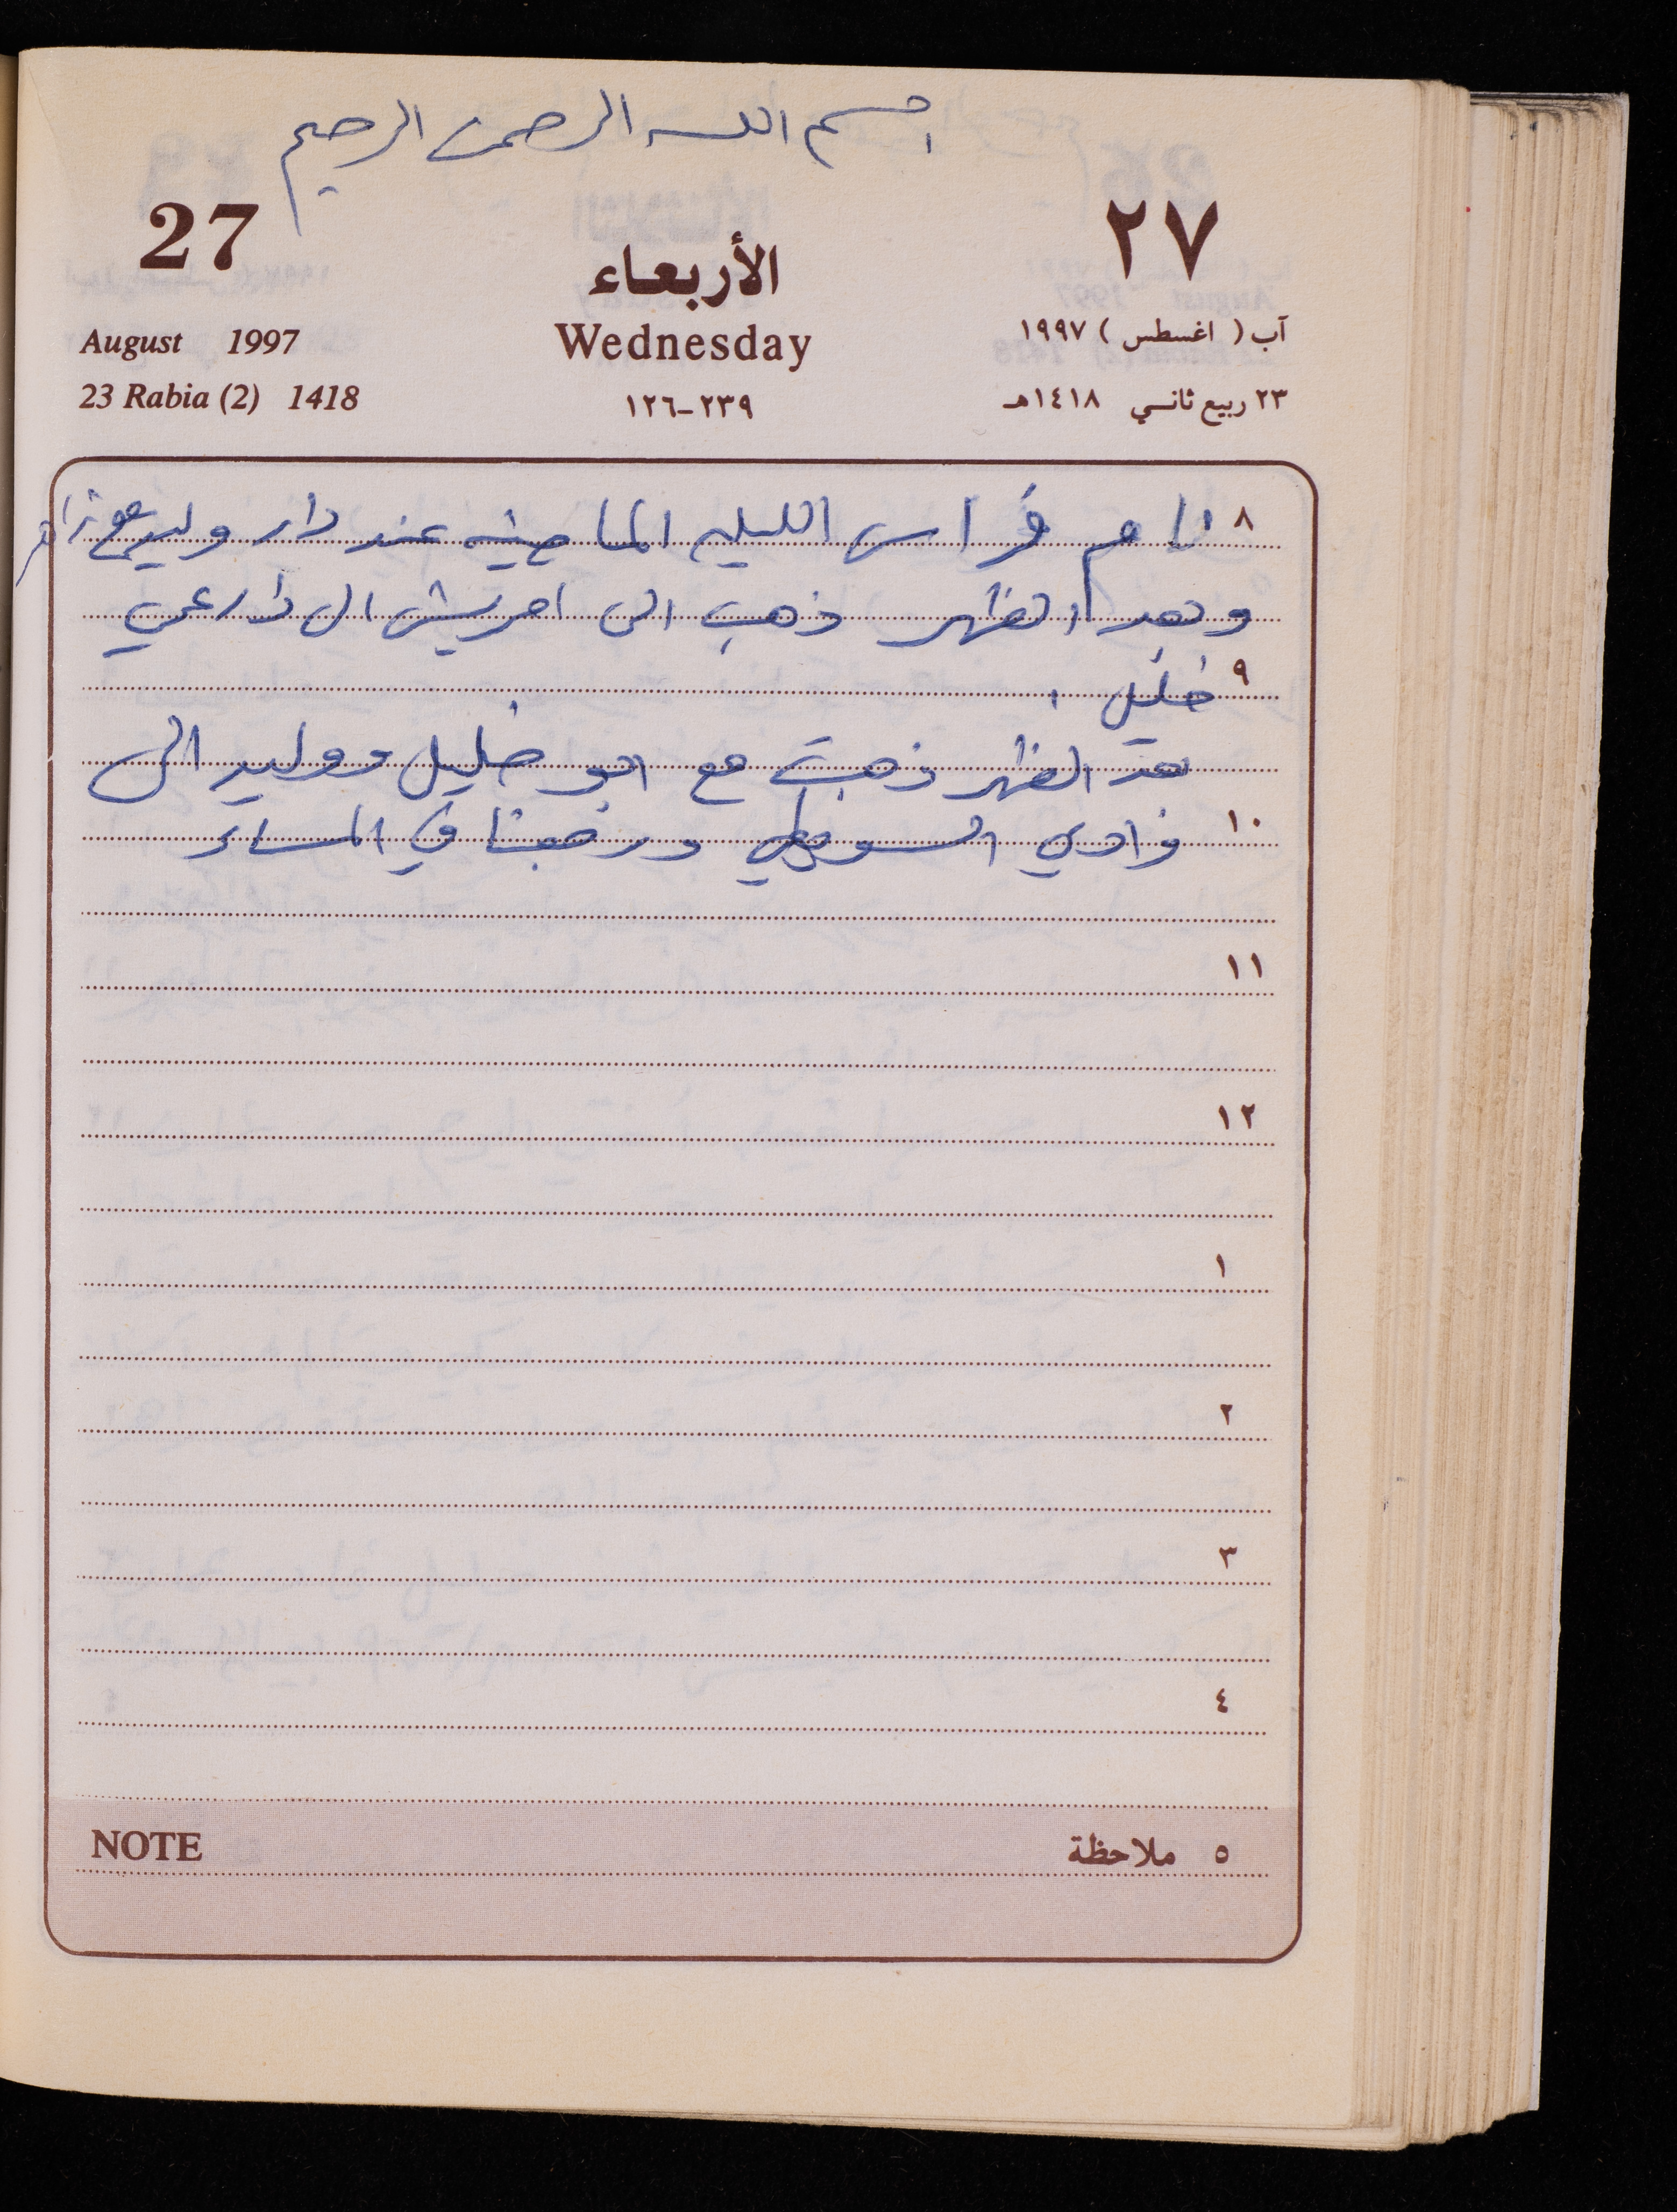 بسم الله الرحمن الرحيم
27
٢٧
الأربعاء
August 1997
Wednesday
آب ( اغسطس ) ١٩٩٧
23 Rabia (2) 1418
٢٣٩-١٢٦
٢٣ ربيع ثانـي ١٤١٨هـ
٨ نام فراس الليله الماضيه عند دار وليد مع
وبعد الظهر ذهب الى الى دار عمي
٩ خليل .
بعد الظهر ذهبت مع ابو خليل ووليد الى
١٠ وادي ورجعنا في المساء
١١
١٢
١
٢
٣
٤
NOTE
٥ ملاحظة